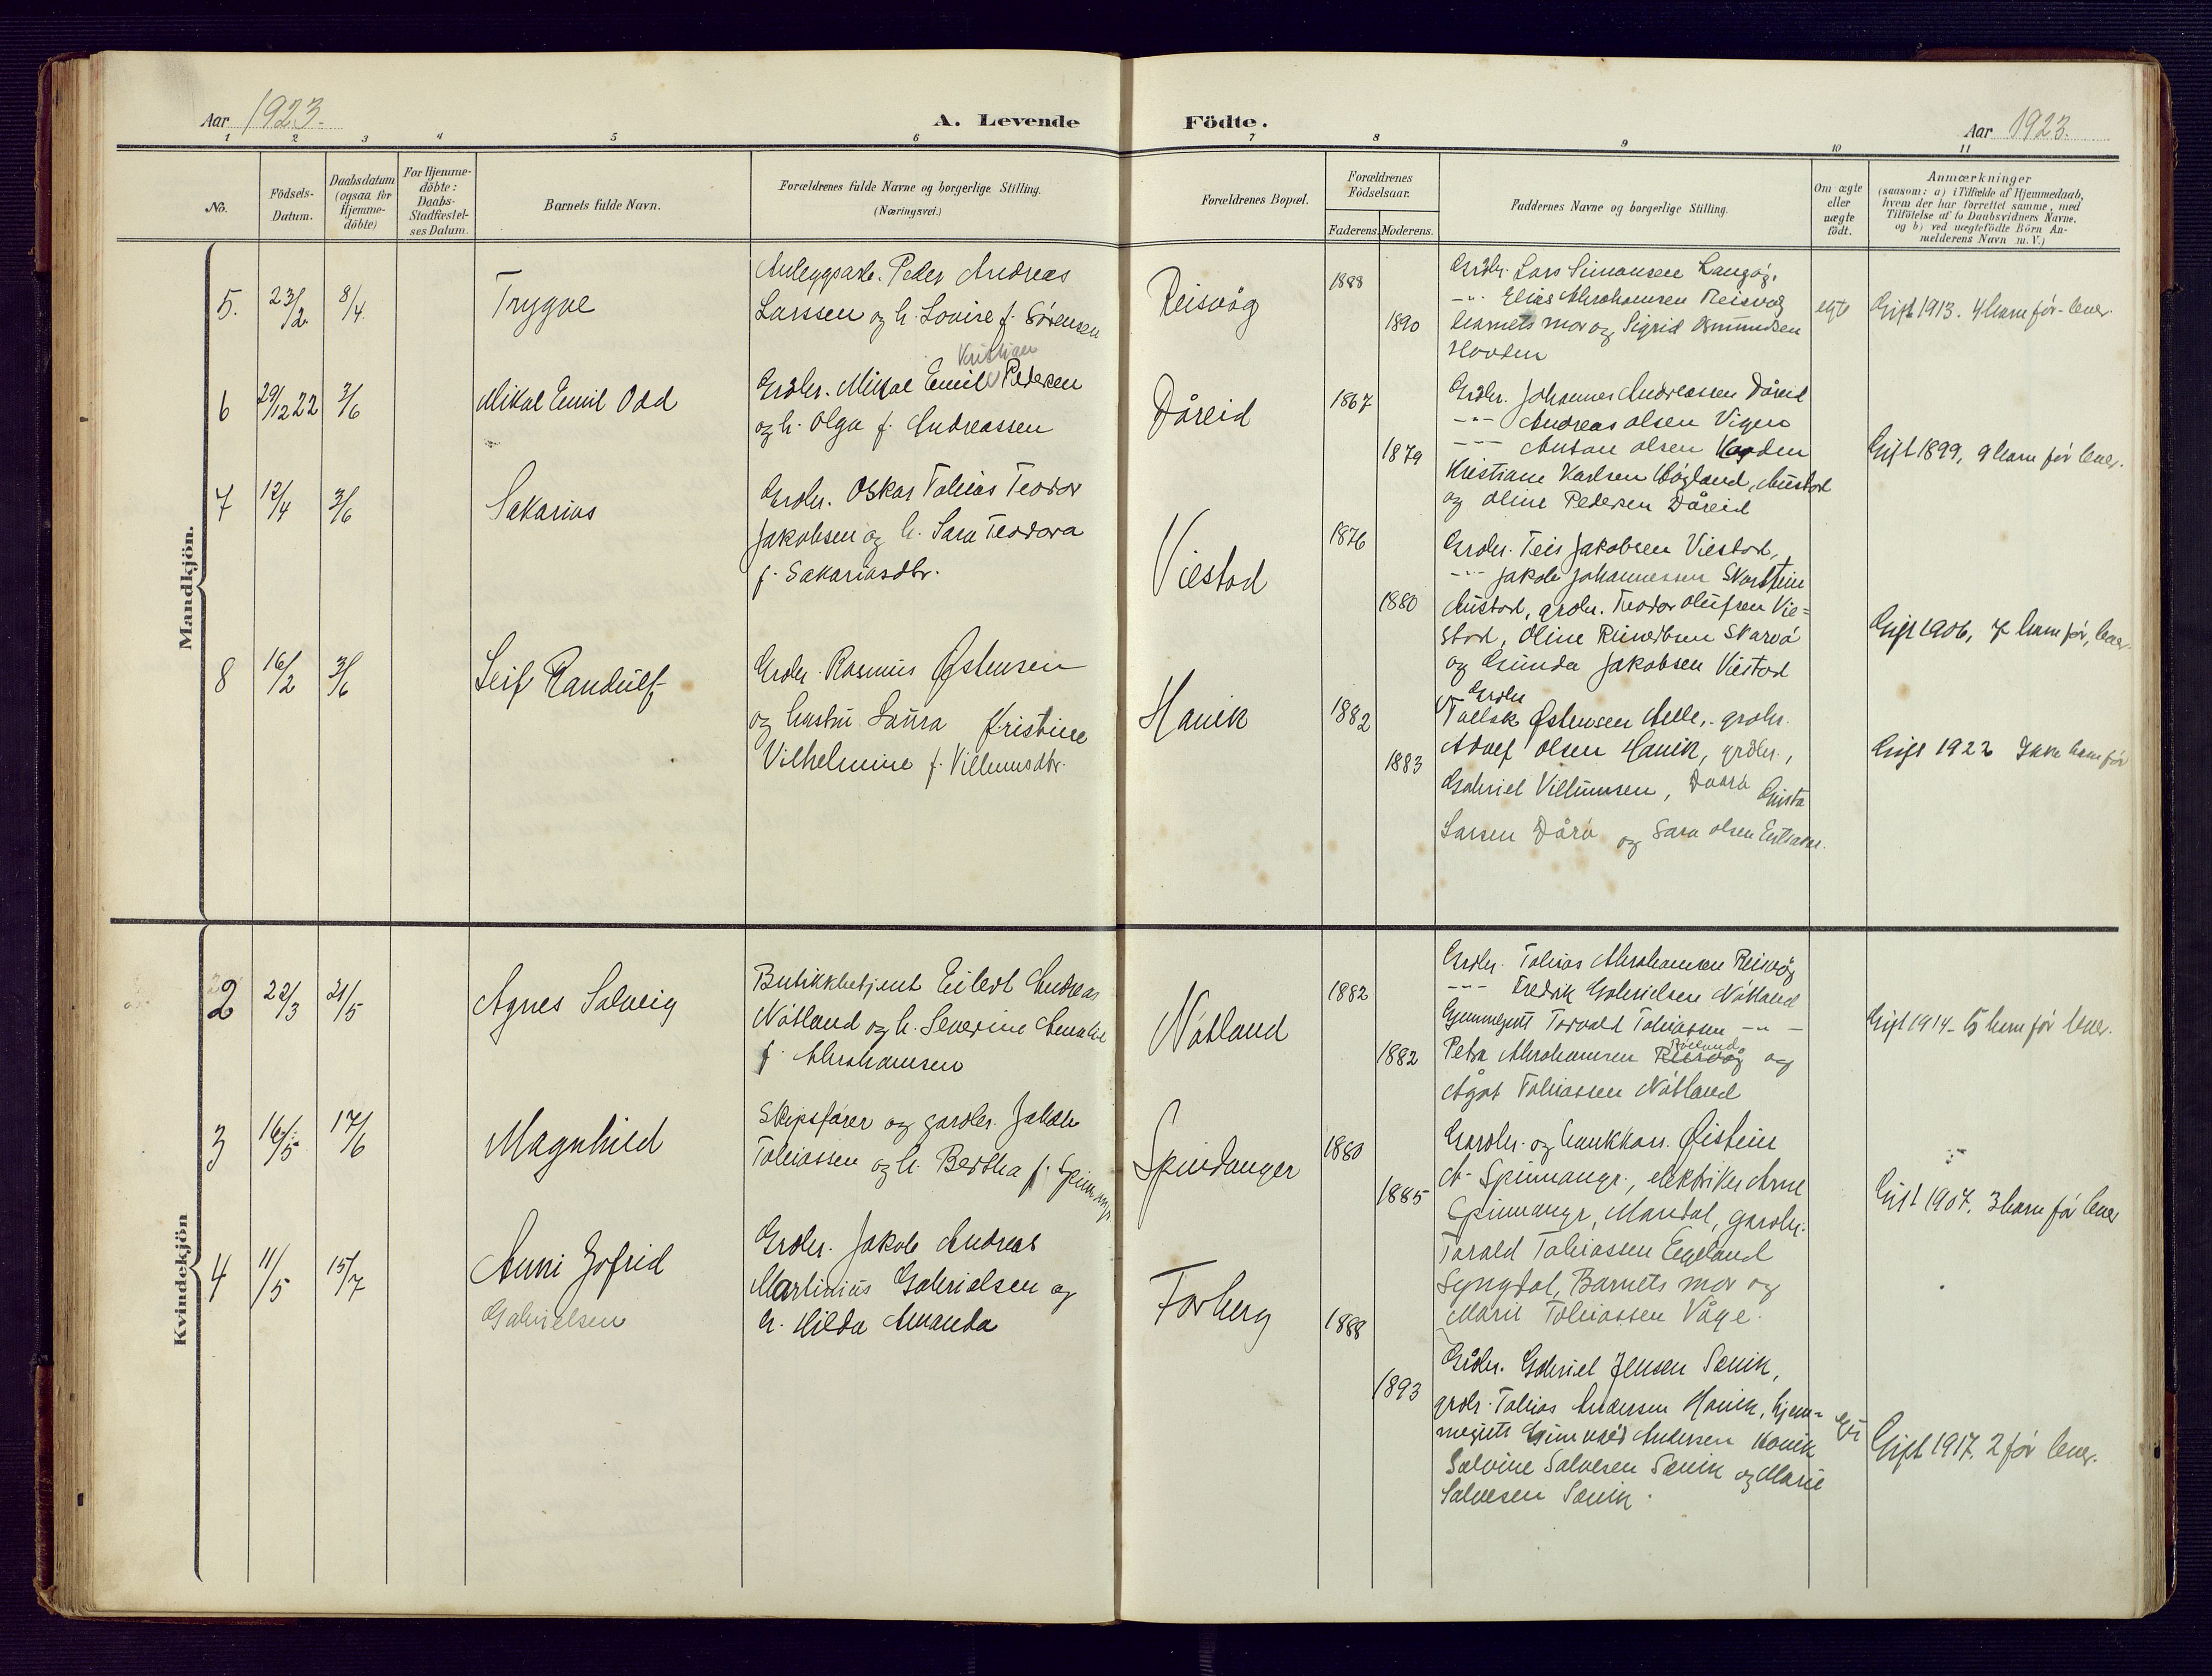 Aar 1923.
A. Levende
Födte.
Aar 1923.
1 2 3 4 5 6 7 8 9 10 11
No.
Födsels-
Datum.
Daabsdatum
(ogsaa for
Hjemme-
döbte)
For Hjemme-
döbte:
Daabs-
Stadfæstel-
ses Datum.
Barnets fulde Navn.
Forældrenes fulde Navne og borgerlige Stilling.
(Næringsvei.)
Forældrenes Bopæl.
Forældrenes
Födselsaar.
Faderens. Moderens.
Faddernes Navne og borgerlige Stilling.
Om ægte
eller
uægte
födt.
Anmærkninger
(saasom: a) i Tilfælde af Hjemmedaab,
hvem der har forrettet samme, med
Tilföielse af to Daabsvidners Navne,
og b) ved uægtefödte Börn An-
melderens Navn m. V.)
Mandkjön.
5. 23/2 8/4 Trygve
Anleggsarb. Peder Andreas
Larssen og h. Lovise f. Sørensen
Reisvåg
1888
1890
Grdbr. Lars Simonsen Langåg,
-"- Elias Abrahamsen Reisvåg
barnets mor og Sigrid Asmundsen
Hovden
egte
Gift 1913. 4 barn før - lever.
6 29/12 22 3/6 Mikal Emil Odd
Kristian
Grdbr. Mikal Emil Pedersen
og h. Olga f. Andreassen
Dåreid
1867
1879
Grdbr. Johannes Andreassen Dåreid
-"- Andreas Olsen Vigen
-"- Anton Olsen
Kristiane Karlsen Høgland, Austad
og Oline Pedersen Dåreid
Gift 1899, 9 barn før lever.
7 12/4 3/6 Sakarias
Grdbr. Oskar Tobias Teodor
Jakobsen og h. Sara Teodora
f. Sakariasdtr.
Viestad
1876
1880
Grdbr. Teis Jakobsen Viestad,
-"- Jakob Johannessen Skarstein
Austad, grdbr. Teodor Olufsen Vie-
stad, Oline Reinertsen Skarvå
og Gunda Jakobsen Viestad
Gift 1906, 7 barn før, lever.
8 16/2 3/6 Leif Randulf
Grdbr. Rasmus Østensen
og hustru Laura Kristine
Vilhelmine f. Villumsdtr.
Hanik
1882
1883
Grdbr
Tollak Østensen Aelle, grdbr.
Adolf Olsen Hanik, grdbr.,
Gabriel Villumsen, Daara Gusta
Larsen Dåra og Sara Olsen
Gift 1922 Ikke barn før
Kvindekjön
2 22/3 21/5 Agnes Solveig
Butikkbetjent Eilert Andreas
Nøtland og h. Severine Amalie
f. Abrahamsen
Nøtland
1882
1882
Grdbr. Tobias Abrahamsen Reisvåg
-"- Fredrik Gabrielsen Nøtland
Hjemmegutt Torvald Tobiassen -"-
Petra Abrahamsen Reisvåg og
Ågot Tobiassen Nøtland
Gift 1914 - 5 barn før lever.
3 16/5 17/6 Magnhild
Skipsfører og gardbr. Jakob
Tobiassen og h. Bertha f. Spinnangr
Spindanger
1880
1885
Gardbr. og bankkass. Øistein
A. Spinnangr., elektriker Arne
Spinnangr, Mandal, gardbr.
Torald Tobiassen Eigeland
Lyngdal, Barnets mor og
Marie Tobiassen Våge.
Gift 1907. 3 barn før lever
4 11/5 15/7 Anni Jofrid
Gabrielsen
Grdbr. Jakob Andreas
Martinius Gabrielsen og
h. Hilda Amanda
Forberg
1888
1893
Grdbr. Gabriel Jensen Sænik,
grdbr. Tobias Andersen Hanik, hjem-
megutt Andersen Hanik
Salvine Salvesen Sænik og Marie
Salvesen Sænik.
Gift 1917. 2 før lever.